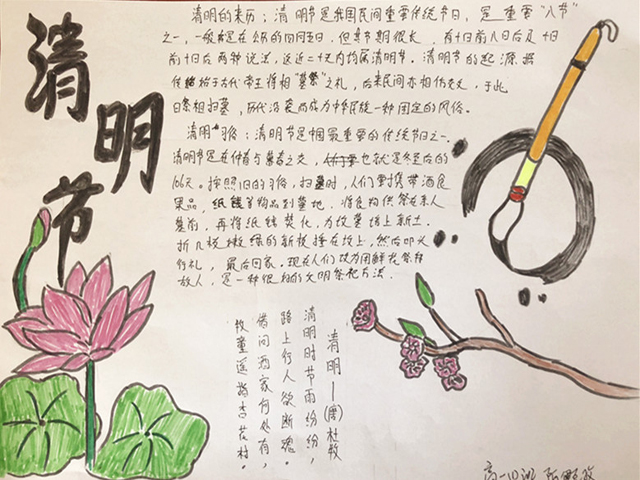 清明节
清明的来历：清明节是我国民间重要传统节日，是重要"八节"
之一，一般是在公历的四月五日，但其节期很长，有十日前八日后及十日
前十日后两种说法，这近二十天内均属清明节。清明节的起源据
传始于古代帝王将相"墓祭"之礼，后来民间亦相仿效，于此
日祭祖扫墓，历代沿袭而成为中华民族一种固定的风俗。
清明习俗：清明节是中国最重要的传统节日之一。
清明节是在仲春与暮春之交，也就是冬至后的
106天。按照旧的习俗，扫墓时，人们要携带酒食
果品，纸钱等物品到墓地，将食物供祭在亲人
墓前，再将纸钱焚化，为坟墓培上新土，
折几枝嫩绿的新枝插在坟上，然后叩头
行礼，最后回家。现在人们改为用鲜花祭拜
故人，是一种很好的文明祭祀方法.
清明—(唐)杜牧
清明时节雨纷纷，
路上行人欲断魂。
借问酒家何处有，
牧童遥指杏花村。
高一10班